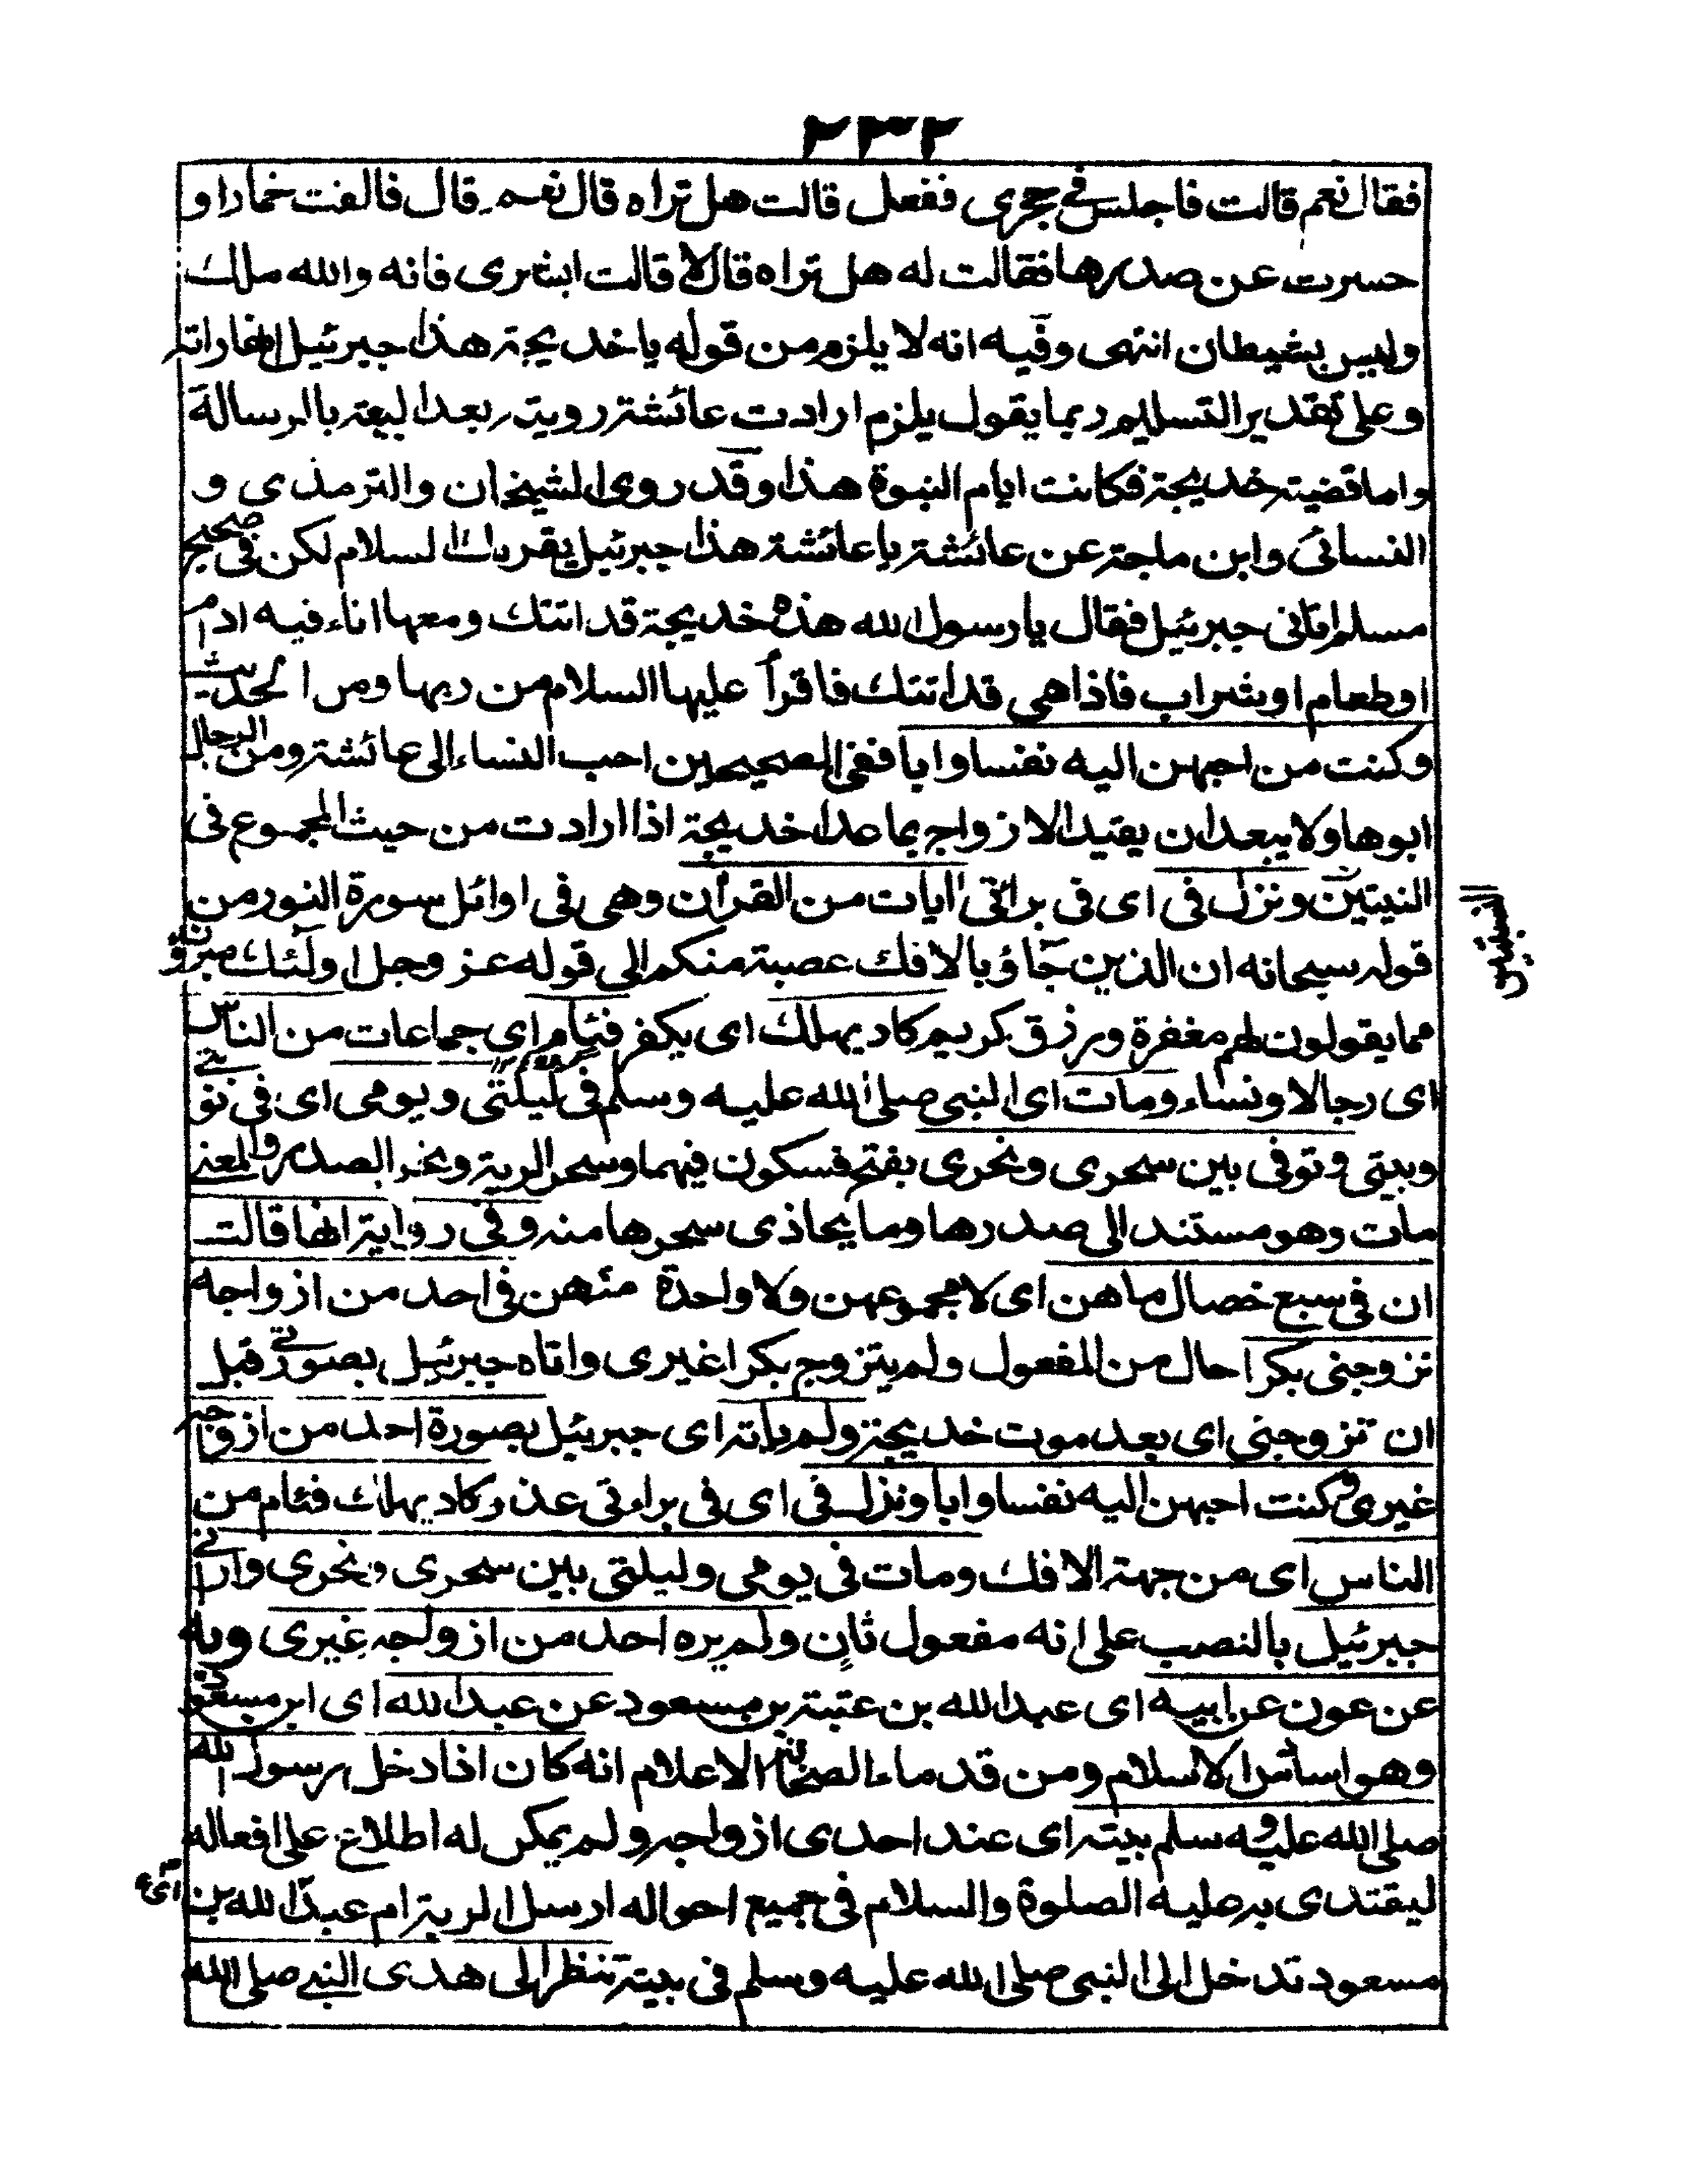 ٢٣٢
فقال نعم قالت فاجلس في حجري ففعل قالت هل تراه قال نعم قال فالفت خمارا و
حسرت عن صدرها فقالت له هل تراه قال لا قالت ابشري فانه والله ملك
وليس بشيطان انتهى وفيه انه لا يلزم من قوله يا خديجة هذا جبرئيل انها راته
وعلى تقدير التسليم ربما يقول يلزم ارادت عائشة رويته بعد البعثة بالرسالة
واما قضية خديجة فكانت ايام النبوة هذا وقد روى الشيخان والترمذي و
النسائي وابن ماجة عن عائشة يا عائشة هذا جبرئيل يقريك السلام لكن في صحيح
مسلم اتاني جبرئيل فقال يا رسول الله هذه خديجة قد اتتك ومعها اناء فيه ادام
او طعام او شراب فاذا هي قد اتتك فاقرأ عليها السلام من ربها ومن الحديث
وكنت من احبهن اليه نفسا وابا ففي الصحيحين احب النساء الى عائشة ومن الرجال
ابوها ولا يبعد ان يقيد الازواج بما عدا خديجة اذا ارادت من حيث المجموع في
النيتين ونزل في اي في براتي ايات من القران وهي في اوائل سورة النور من
قوله سبحانه ان الذين جاؤ بالافك عصبة منكم الى قوله عز وجل اولئك مبرؤن
مما يقولون لهم مغفرة ورزق كريم كاد يهلك اي يكفر فئام اي جماعات من الناس
اي رجالا ونساء ومات اي النبي صلى الله عليه وسلم في ليلتي ويومي اي في نوبتي
وبيتي وتوفى بين سحري ونحري بفتح فسكون فيهما وسحر الرية ونحر الصدر والمعنى
مات وهو مستند الى صدرها وما يحاذي سحرها منه وفي رواية انها قالت
ان في سبع خصال ما هن اي لا مجموعهن ولا واحدة منهن في احد من ازواجه
تزوجني بكرا حال من المفعول ولم يتزوج بكرا غيري واتاه جبرئيل بصورتي قبل
ان تزوجني اي بعد موت خديجة ولم ياته اي جبرئيل بصورة احد من ازواجه
غيري وكنت احبهن اليه نفسا وابا ونزل في اي في براءتي عذر كاد يهلك فئام من
الناس اي من جهة الافك ومات في يومي وليلتي بين سحري ونحري واراني
جبرئيل بالنصب على انه مفعول ثان ولم يره احد من ازواجه غيري وبه
عن عون عن ابيه اي عبد الله بن عتبة بن مسعود عن عبد الله اي ابن مسعود
وهو اساس الاسلام ومن قدماء الصحابة الاعلام انه كان اذا دخل رسول الله
صلى الله عليه وسلم بيته اي عند احدى ازواجه ولم يمكن له اطلاع على افعاله
ليقتدي به عليه الصلوة والسلام في جميع احواله ارسل الرية ام عبد الله بن
مسعود تدخل الى النبي صلى الله عليه وسلم في بيته تنظر الى هدى النبي صلى الله